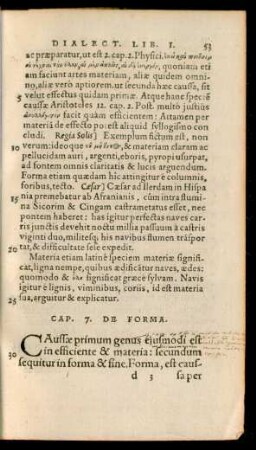 DIALECT. LIB. I. 53
ac præparatur, ut est 2. cap. 2. Physici.
quoniam eti
am faciunt artes materiam, aliæ quidem omni-
no, aliæ verò aptiorem. ut secunda hæc caussa, sit
5 velut effectus quidam primæ. Atque hanc speciē
caussæ Aristoteles 12. cap. 2. Post. multò justiùs
facit quàm efficientem: Attamen per
materiā de effecto pos est aliquid syllogismo con
cludi. Regia Solis) Exemplum fictum est, non
10 verum: ideoque & materiam claram ac
pellucidam auri, argenti, eboris, pyropi usurpat,
ad fontem omnis claritatis & lucis arguendum.
Forma etiam quædam hîc attingitur è columnis,
foribus, tecto. Cæsar) Cæsar ad Ilerdam in Hispa
15 nia premebatur ab Afranianis, cùm intra flumi-
na Sicorim & Cingam castrametatus esset, nec
pontem haberet: has igitur perfectas naves car-
ris junctis devehit noctu millia passuum à castris
viginti duo, militesq; his navibus flumen trāspor
20 tat, & difficultate sese expedit.
Materia etiam latinè speciem materiæ signifi-
cat, ligna nempe, quibus ædificātur naves, ædes:
quomodo & ὕλη significat græcè sylvam. Navis
igitur è lignis, viminibus, coriis, id est materia
25 sua, arguitur & explicatur.
CAP. 7. DE FORMA.
CAussæ primum genus ejusmodi est
in efficiente & materia: secundum
30
sequitur in forma & fine. Forma, est caus-
d 3 sa per